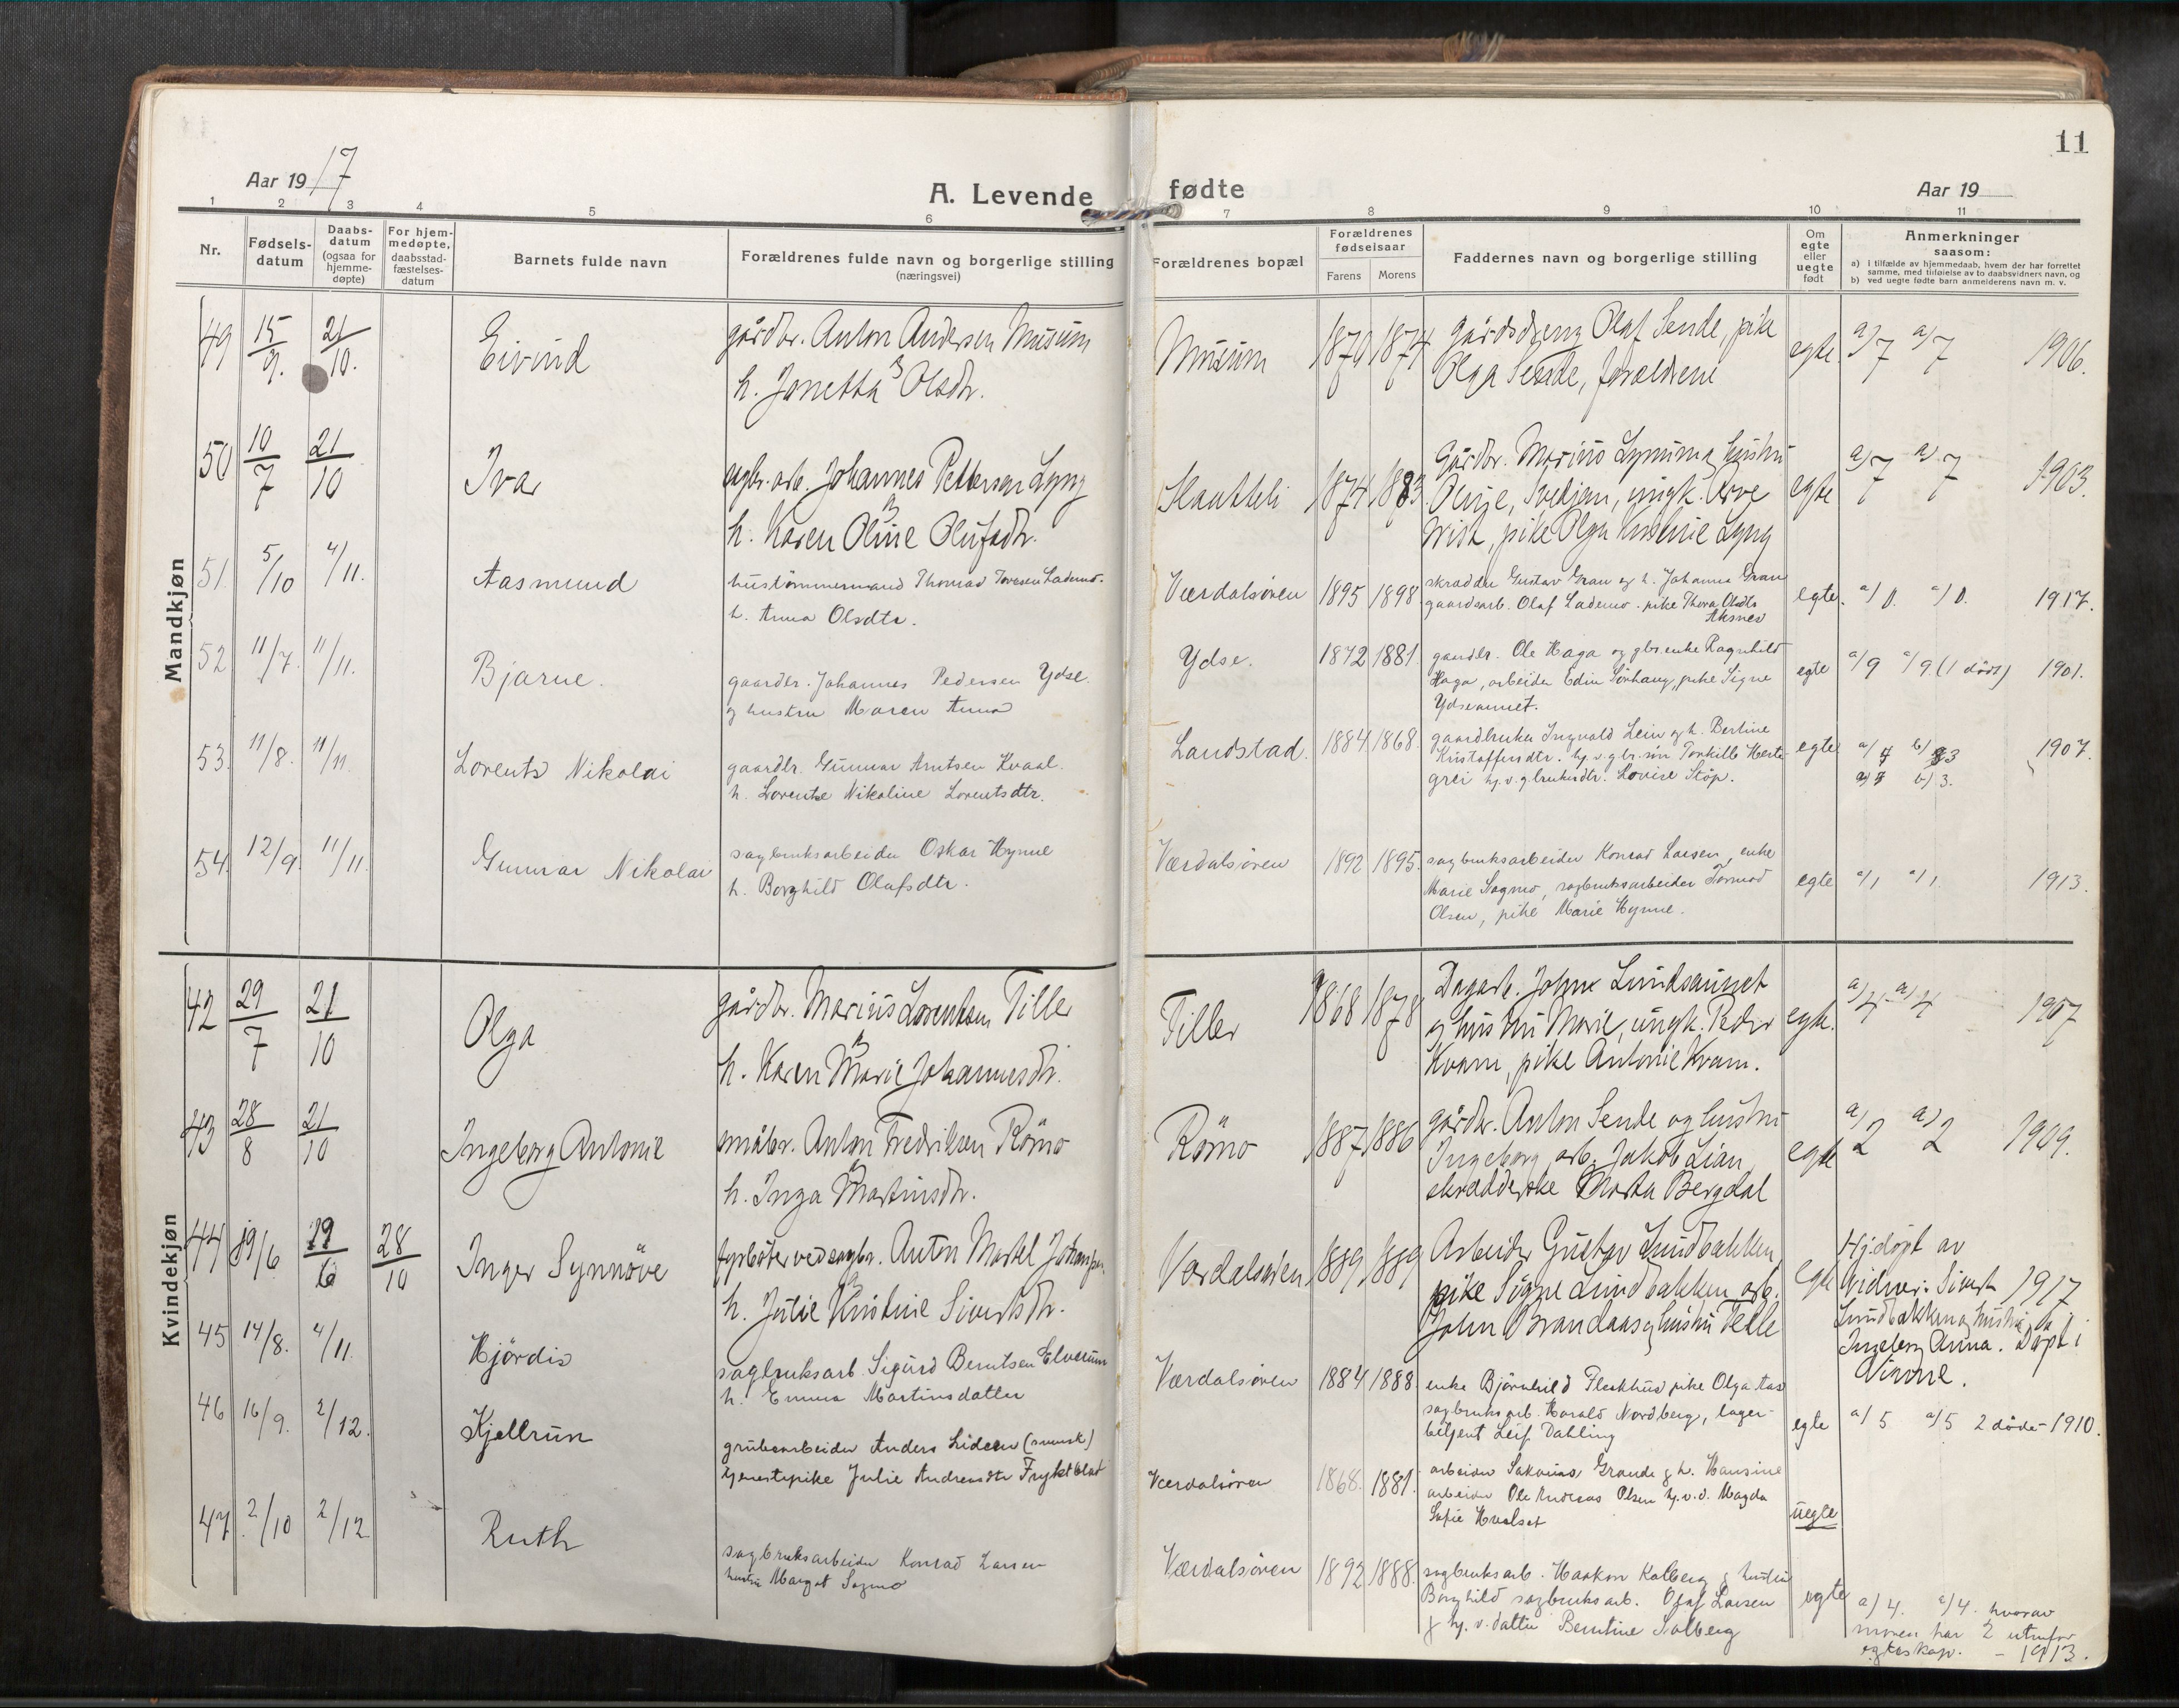 11
Aar 1917
A. Levende fødte
Aar 19
1 2 3 4 5 6 7 8 9 10 11
Nr.
Fødsels-
datum
Daabs-
datum
(ogsaa for
hjemme-
døpte)
For hjem-
medøpte,
daabsstad-
fæstelses-
datum
Barnets fulde navn
Forældrenes fulde navn og borgerlige stilling
(næringsvei)
Forældrenes bopæl
Forældrenes
fødselsaar
Farens Morens
Faddernes navn og borgerlige stilling
Om
egte
eller
uegte
født
Anmerkninger
saasom:
a) i tilfælde av hjemmedaab, hvem der har forrettet
samme, med tilføielse av to daabsvidners navn, og
b) ved uegte fødte barn anmelderens navn m. v.
Mandkjøn
49 15/9. 21/10. Eivind
gårdbr. Anton Andersen Musum
h. Jonetta Olsdtr.
Musum 1870 1874
gårdsdreng Olaf Sende, pike
Olga Sende, forældrene
egte. a) 7 a) 7 1906.
50 10/7 21/10 Ivar
Johannes Pettersen Lyng
h. Karen Oline Olufsdtr.
1874 1883
Gårdbr. Marius hustru
ungk. Arve
Wist, pike Olga Lyng
egte a) 7 a) 7 1903.
51. 5/10 4/11. Aasmund
hustömmermand Thomas Toresen Lademo.
h. Anna Olsdtr.
Værdalsøren 1895 1898
skrædder Gustav Gran og h. Johanna Gran
gaardsarb. Olaf Lademo. pike Thora Olsdtr
Aksnes
egte. a/ 0. a/ 0. 1917.
52 11/7. 11/11. Bjarne.
gaardbr. Johannes Pedersen Ydse.
og hustru Maren Anna
Ydse. 1872 1881.
gaardbr. Ole Haga og gbr.enke Ragnhild
Haga, arbeider Edin Sörhaug, pike Signe
Ydseaunet.
egte a/9 a/9 (1 død) 1901.
53. 11/8. 11/11. Lorents Nikolai
gaardbr. Gunnar Arntsen Kvaal.
h. Lorentse Nikoline Lorentsdtr.
Landstad. 1884 1868.
gaardbruker Ingvald Lein og h. Bertine
Kristoffersdtr. hj.v. gbr. sön Torkille
hj.v. g.brukerdtr. Lovise Stöp.
egte a/ 7 b/ 3 1907.
a/ 7 b/ 3.
54. 12/9. 11/11. Gunnar Nikolai
sagbruksarbeider Oskar Hynne
h. Borghild Olafsdtr.
Værdalsøren 1892 1895.
sagbruksarbeider Konrad Larsen, enke
Marie Sagmo, sagbruksarbeider Tormod
Olsen, pike Marie Hynne.
egte a/1 a/1. 1913.
Kvindekjøn
42 29/7 21/10 Olga
gårdbr. Marius Lorentsen Tiller
h. Karen Marie Johannesdtr.
Tiller 1868 1878
Dagarb. John Lundsaunet
og hustru Marie, ungk. Peder
Kvam, pike Antonie Kvam.
egte. a) 4 a) 4 1907
43 28/8 21/10 Ingeborg Antonie
småbr. Anton Fredriksen Römo
h. Inga Martinsdtr.
Römo 1887 1886
gårdbr. Anton Sende og hustru
Ingeborg, arb. Jakob Lian,
skrædderske Marta Bergdal
egte a) 2 a) 2 1909.
44 19/6 19/6 28/10 Inger Synnöve
fyrböter ved sagbr. Anton Martel Johansen.
h. Julie Kristine Sivertsdtr.
Værdalsøren 1889 1889
Arbeider Gustav Lundbakken,
pike Signe Lundbakken, arb.
John Brandaas og hustru
egte
Hj.döpt av
Vidner: Sivert 1917
Lundbakken og hustru
Ingeborg Anna. Döpt i
Vinne.
45 14/8. 4/11. Hjördis
sagbruksarb. Sigurd Berntsen Elverum
h. Emma Martinsdatter
Værdalsøren 1884 1888.
enke Björnhild Fleskhus pike Olga Aas
sagbruksarb. Harald Nordberg, lager-
betjent Leif Dahling
egte a/ 5 a/5 2 döde - 1910.
46 16/9. 2/12. Kjellrun
grubearbeider Anders Lideen (svensk)
tjenestepike Julie Andreasdtr
Værdalsøren 1868. 1881.
arbeider Sakarias Grande og h. Hansine
arbeider Ole Andreas Olsen hj.v.d. Magda
Sofie Kvelset
uegte
47. 2/10 2/12. Ruth
sagbruksarbeider Konrad Larsen
hustru Margot Sagmo
Værdalsøren 1892 1888.
sagbruksarb. Haakon Kalberg og hustru
Borghild sagbruksarb. Olaf Larsen
og hj.v. datter Berntine Solberg
egte a/ 4. a/ 4. hvorav
moren har 2 utenfor
egteskap. - 1913.